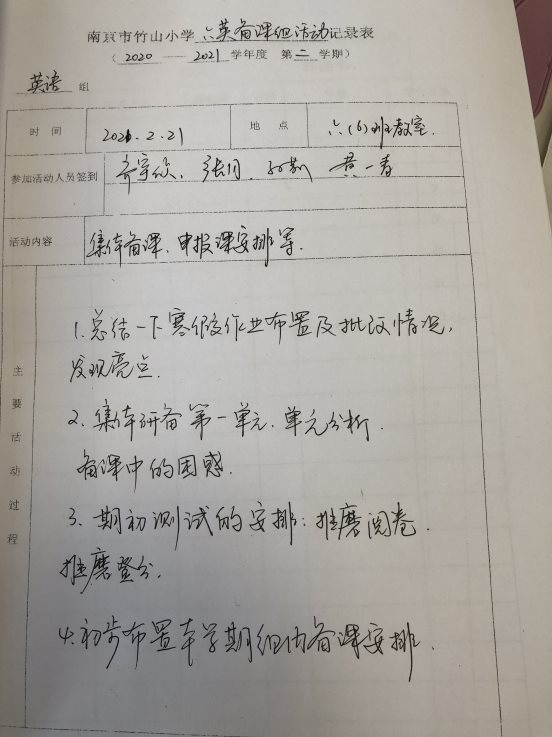 南京市竹山小学 六英备课组活动记录表
( 2020 — 2021 学年度 第 二 学期)
英语 组
时 间 2021.2.21 地 点 六(6)班教室.
参加活动人员签到 齐宇欣、张月、 黄一春
活动内容 集体备课、申报课安排等.
主要活动过程
1.总结一下寒假作业布置及批改情况,
发现亮点.
2.集体研备第一单元.单元分析.
备课中的困惑.
3.期初测试的安排:推磨阅卷.
推磨登分.
4.初步布置本学期组内备课安排.